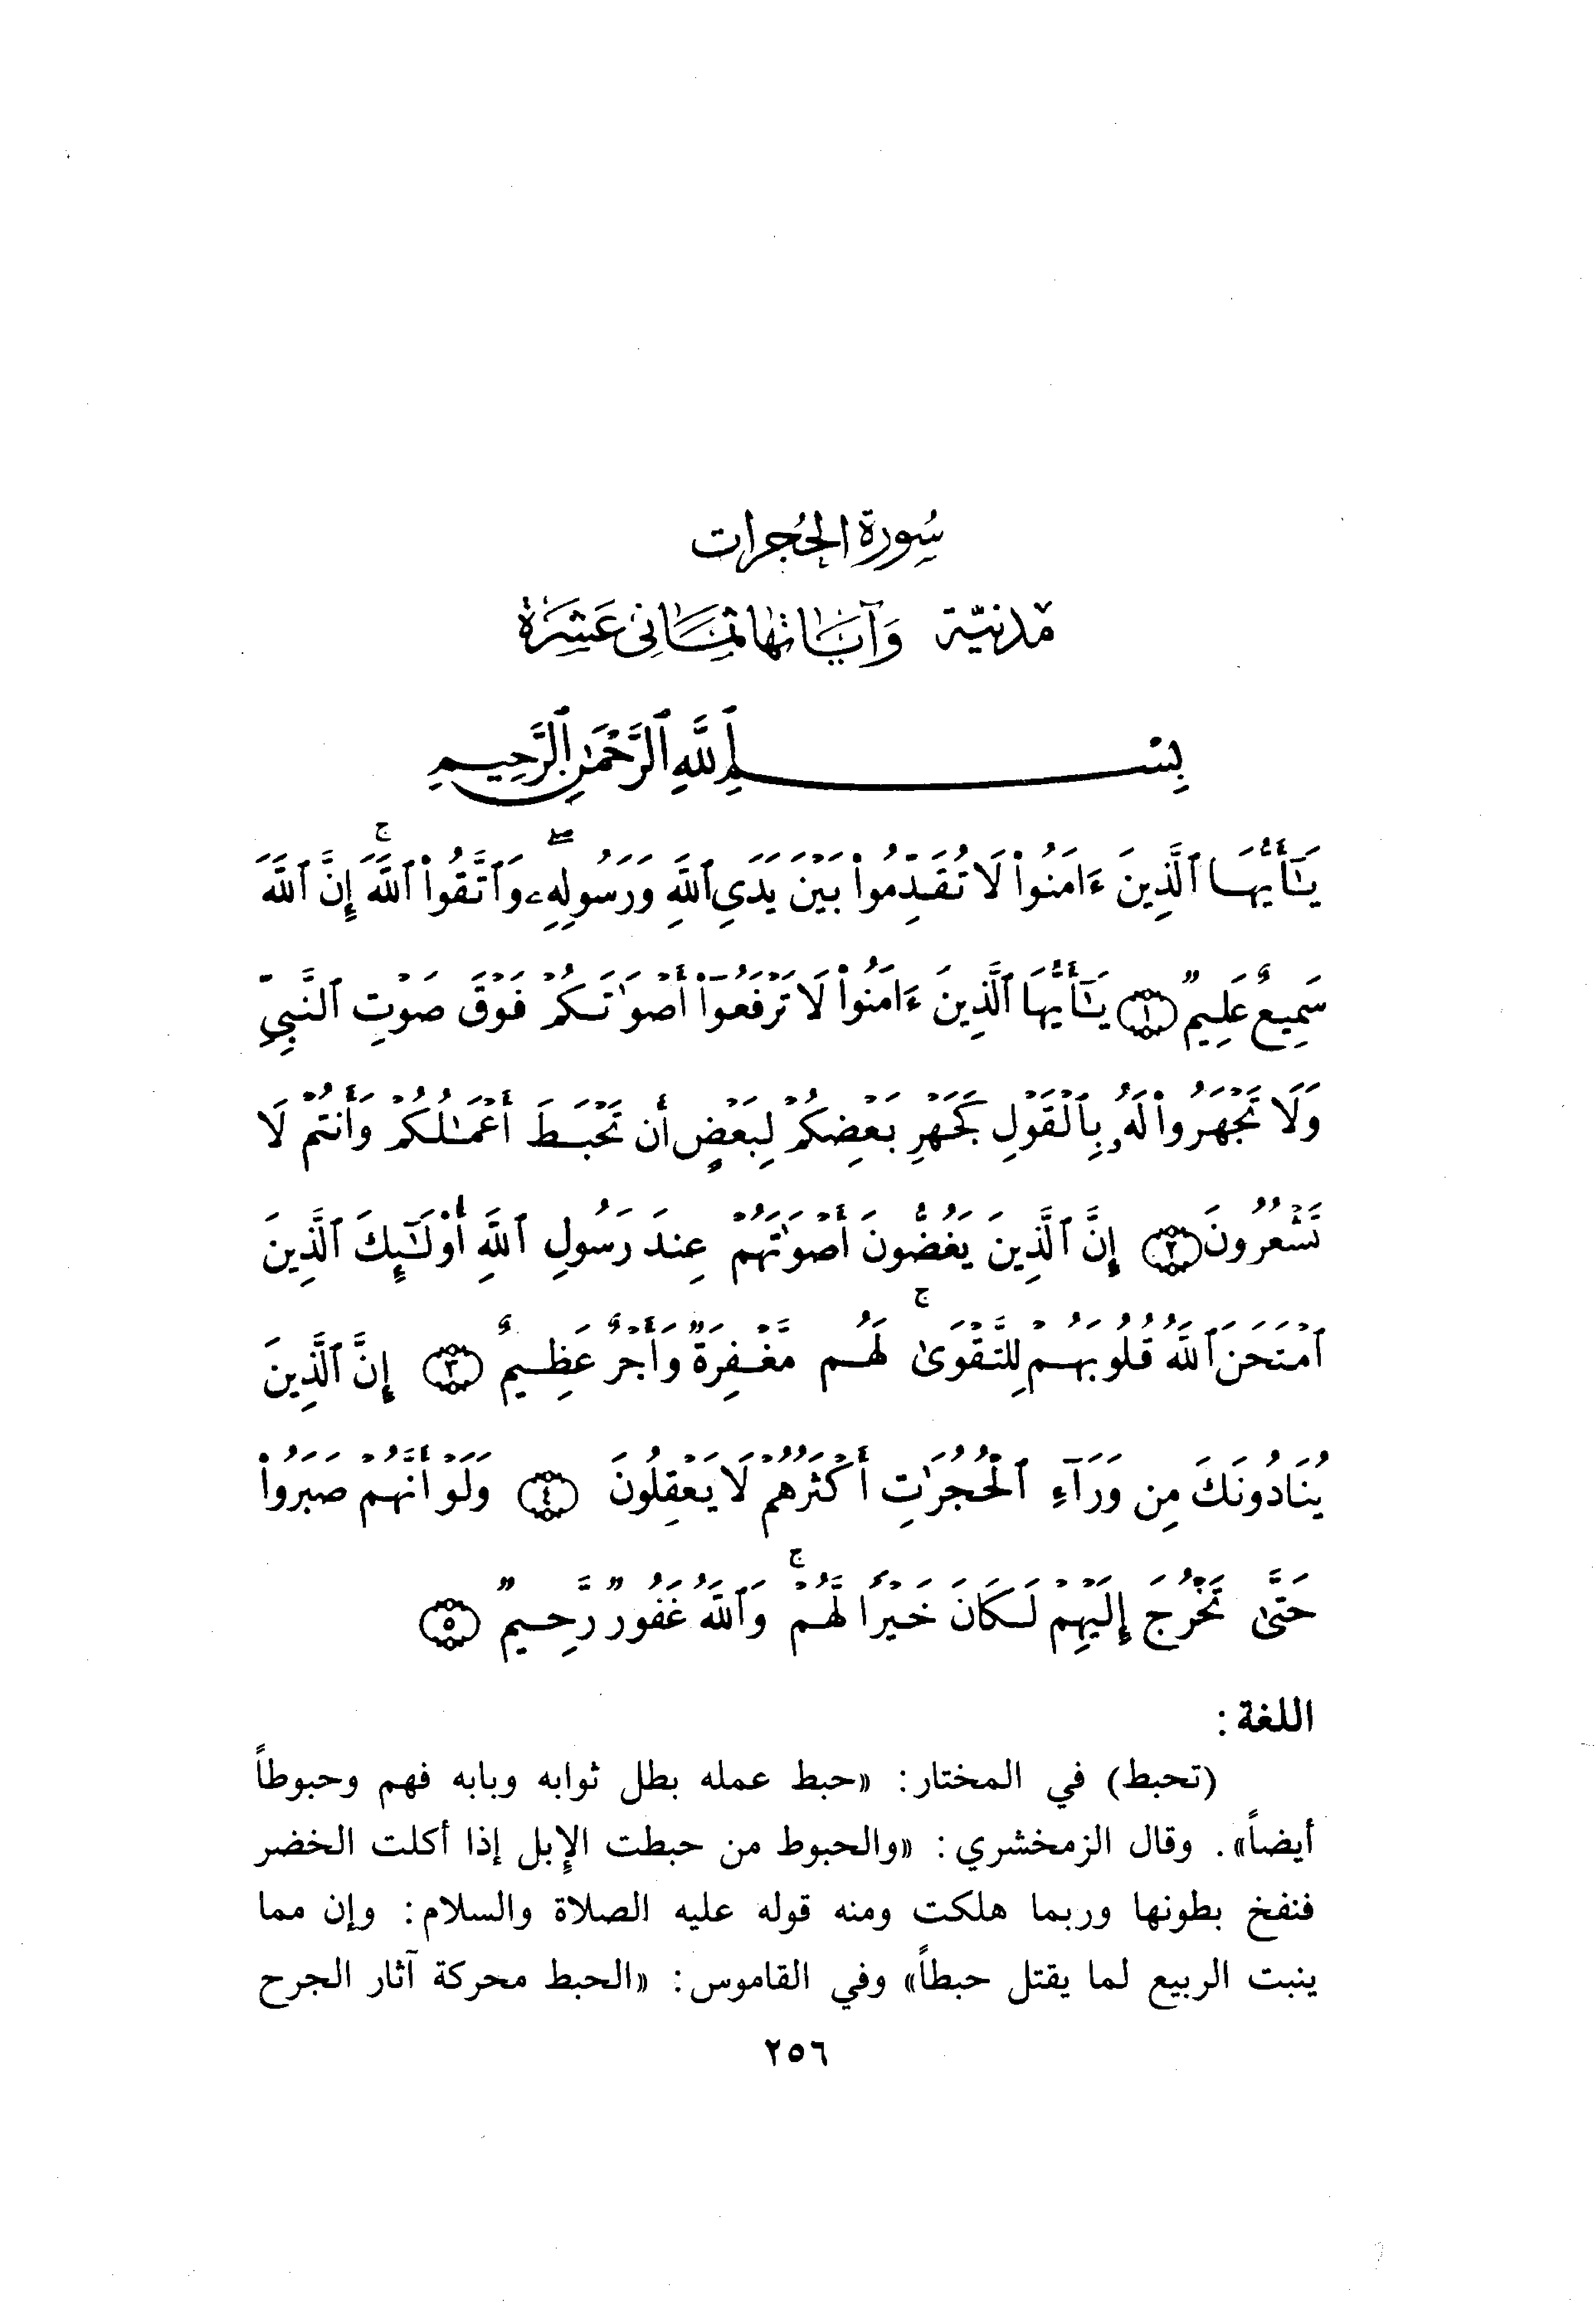 سُورة الحُجرات
مدنيّة وَآيَاتها ثَمَاني عَشَرَة
بِسْمِ ٱللَّهِ ٱلرَّحْمَٰنِ ٱلرَّحِيمِ
يَـٰٓأَيُّهَا ٱلَّذِينَ ءَامَنُوا۟ لَا تُقَدِّمُوا۟ بَيْنَ يَدَىِ ٱللَّهِ وَرَسُولِهِۦۖ وَٱتَّقُوا۟ ٱللَّهَۚ إِنَّ ٱللَّهَ
سَمِيعٌ عَلِيمٌ ۝١ يَـٰٓأَيُّهَا ٱلَّذِينَ ءَامَنُوا۟ لَا تَرْفَعُوٓا۟ أَصْوَٰتَكُمْ فَوْقَ صَوْتِ ٱلنَّبِىِّ
وَلَا تَجْهَرُوا۟ لَهُۥ بِٱلْقَوْلِ كَجَهْرِ بَعْضِكُمْ لِبَعْضٍ أَن تَحْبَطَ أَعْمَـٰلُكُمْ وَأَنتُمْ لَا
تَشْعُرُونَ ۝٢ إِنَّ ٱلَّذِينَ يَغُضُّونَ أَصْوَٰتَهُمْ عِندَ رَسُولِ ٱللَّهِ أُو۟لَـٰٓئِكَ ٱلَّذِينَ
ٱمْتَحَنَ ٱللَّهُ قُلُوبَهُمْ لِلتَّقْوَىٰۚ لَهُم مَّغْفِرَةٌ وَأَجْرٌ عَظِيمٌ ۝٣ إِنَّ ٱلَّذِينَ
يُنَادُونَكَ مِن وَرَآءِ ٱلْحُجُرَٰتِ أَكْثَرُهُمْ لَا يَعْقِلُونَ ۝٤ وَلَوْ أَنَّهُمْ صَبَرُوا۟
حَتَّىٰ تَخْرُجَ إِلَيْهِمْ لَكَانَ خَيْرًا لَّهُمْۚ وَٱللَّهُ غَفُورٌ رَّحِيمٌ ۝٥
اللغة :
(تحبط) في المختار: «حبط عمله بطل ثوابه وبابه فهم وحبوطاً
أيضاً». وقال الزمخشري: «والحبوط من حبطت الإبل إذا أكلت الخضر
فنفخ بطونها وربما هلكت ومنه قوله عليه الصلاة والسلام: وإن مما
ينبت الربيع لما يقتل حبطاً» وفي القاموس: «الحبط محركة آثار الجرح
٢٥٦